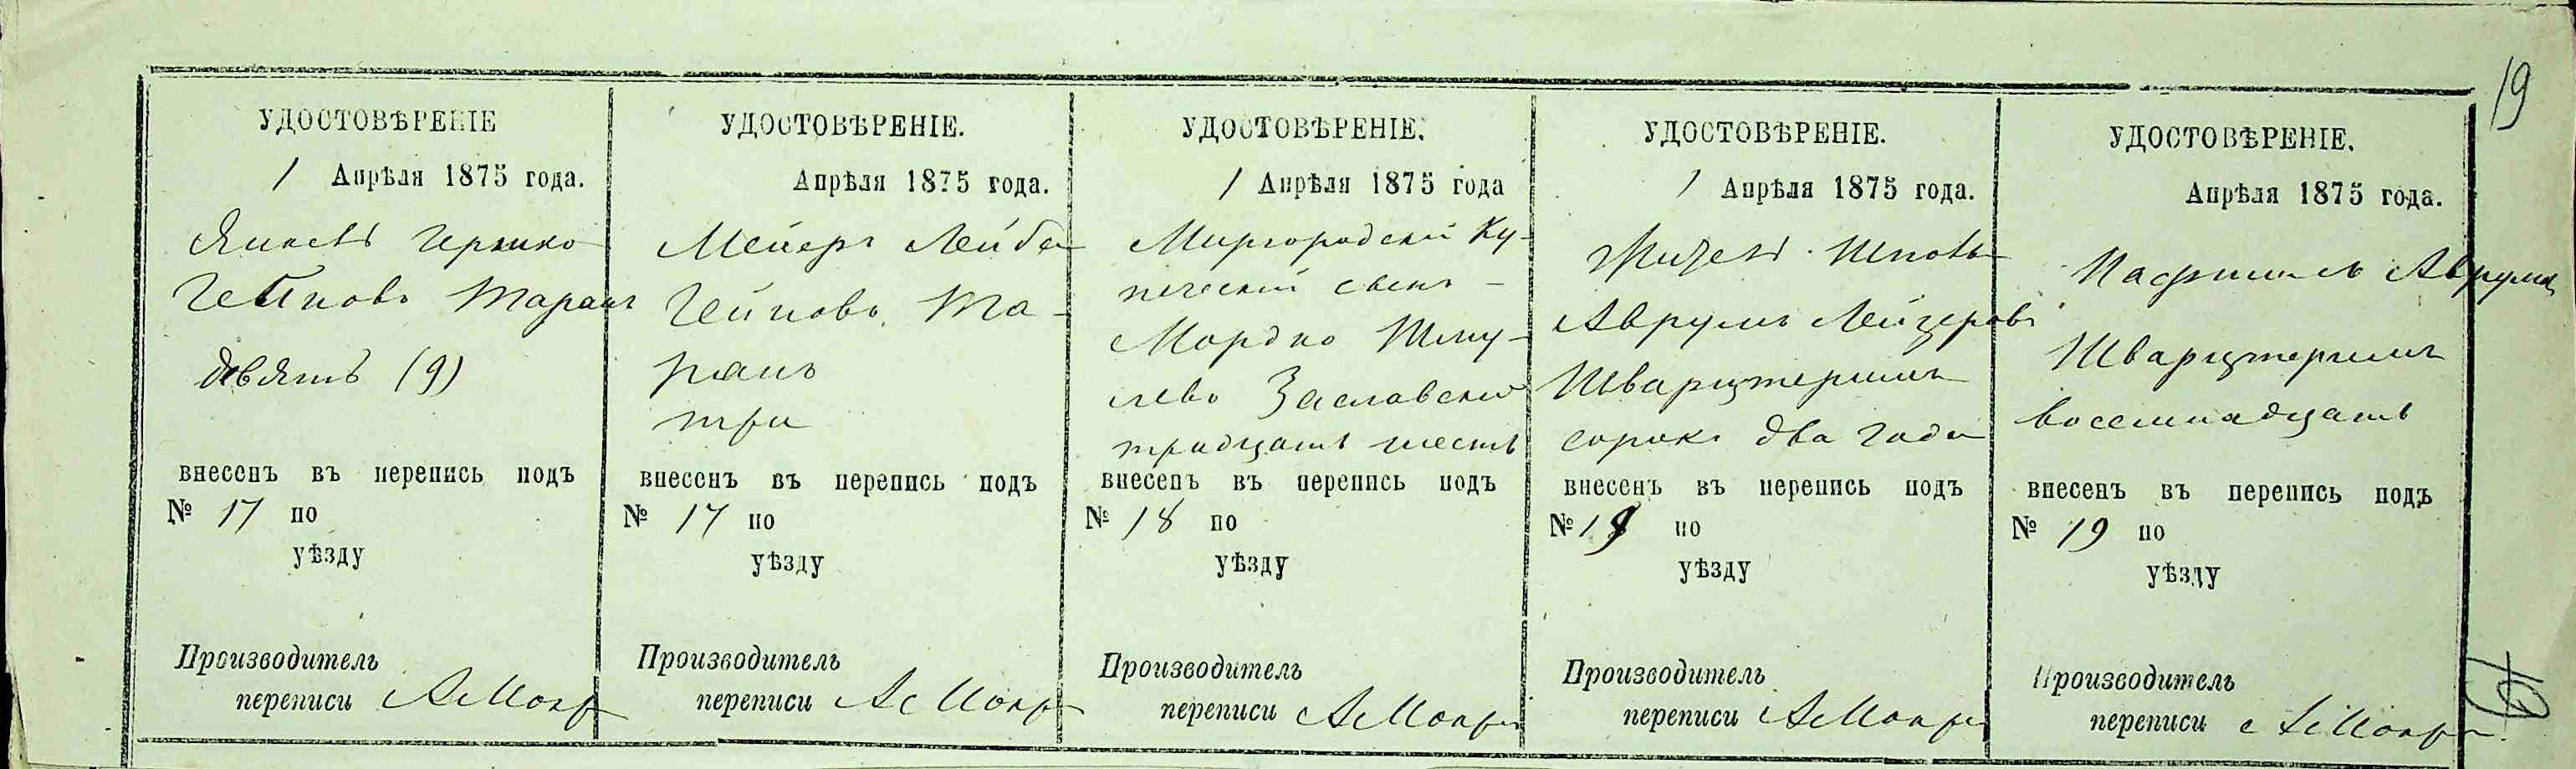 19
УДОСТОВѢРЕНІЕ
1 Апрѣля 1875 года.
Гершко
Таранъ
девять (9)
внесенъ въ перепись подъ
№ 17 по
уѣзду
Производитель
переписи
УДОСТОВѢРЕНІЕ.
Апрѣля 1875 года.
Мейеръ Лейба
Та-
ранъ
три
внесенъ въ перепись подъ
№ 17 по
уѣзду
Производитель
переписи
УДОСТОВѢРЕНІЕ.
1 Апрѣля 1875 года
Миргородскій Ку-
печескій сынъ -
Мордко Шму-
левъ Заславскій
тридцать шесть
внесенъ въ перепись подъ
№ 18 по
уѣзду
Производитель
переписи
УДОСТОВѢРЕНІЕ.
1 Апрѣля 1875 года.
Аврумъ Лейзеровъ
сорокъ два года
внесенъ въ перепись подъ
№ 19 по
уѣзду
Производитель
переписи
УДОСТОВѢРЕНІЕ.
Апрѣля 1875 года.
восемнадцать
внесенъ въ перепись подъ
№ 19 по
уѣзду
Производитель
переписи